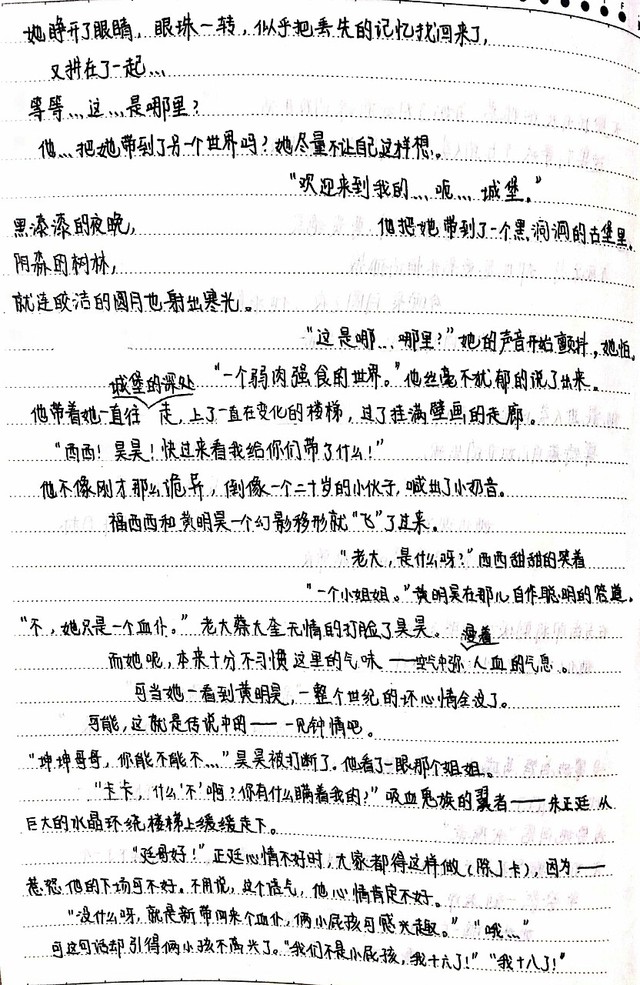 她睁开了眼睛，眼珠一转，似乎把丢失的记忆找回来了，
又拼在了一起…
等等…这…是哪里？
他…把她带到了另一个世界吗？她尽量不让自己这样想。
“欢迎来到我的…呃…城堡。”
黑漆漆的夜晚，
他把她带到了一个黑洞洞的古堡里。
阴森的树林，
就连皎洁的圆月也射出寒光。
“这是哪…哪里？”她的声音开始颤抖，她怕。
“一个弱肉强食的世界。”他丝毫不犹郁的说了出来。
他带着她一直往城堡的深处走，上了一直在变化的楼梯，过了挂满壁画的走廊。
“西西！昊昊！快过来看我给你们带了什么！”
他不像刚才那么诡异，倒像一个二十岁的小伙子，喊出了小奶音。
福西西和黄明昊一个幻影移形就“飞”了过来。
“老大，是什么呀？”西西甜甜的笑着
“一个小姐姐。”黄明昊在那儿自作聪明的答道。
“不，她只是一个血仆。”老大蔡大奎无情的打脸了昊昊。
而她呢，本来十分不习惯这里的气味——空气中弥漫着人血的气息。
可当她一看到黄明昊，一整个世纪的坏心情全没了。
可能，这就是传说中的——一见钟情吧。
“坤坤哥哥，你能不能不…”昊昊被打断了。他看了一眼那个姐姐。
“卡卡，什么‘不’啊？你有什么瞒着我的？”吸血鬼族的翼者——朱正廷从
巨大的水晶环绕楼梯上缓缓走下。
“廷哥好！”正廷心情不好时，大家都得这样做（除了卡），因为——
惹怒他的下场可不好。不用说，这个语气，他心情肯定不好。
“没什么呀，就是新带回来个血仆，俩小屁孩可感兴趣。”“哦…”
可这句话却引得俩小孩不高兴了。“我们不是小屁孩，我十六了！”“我十八了！”